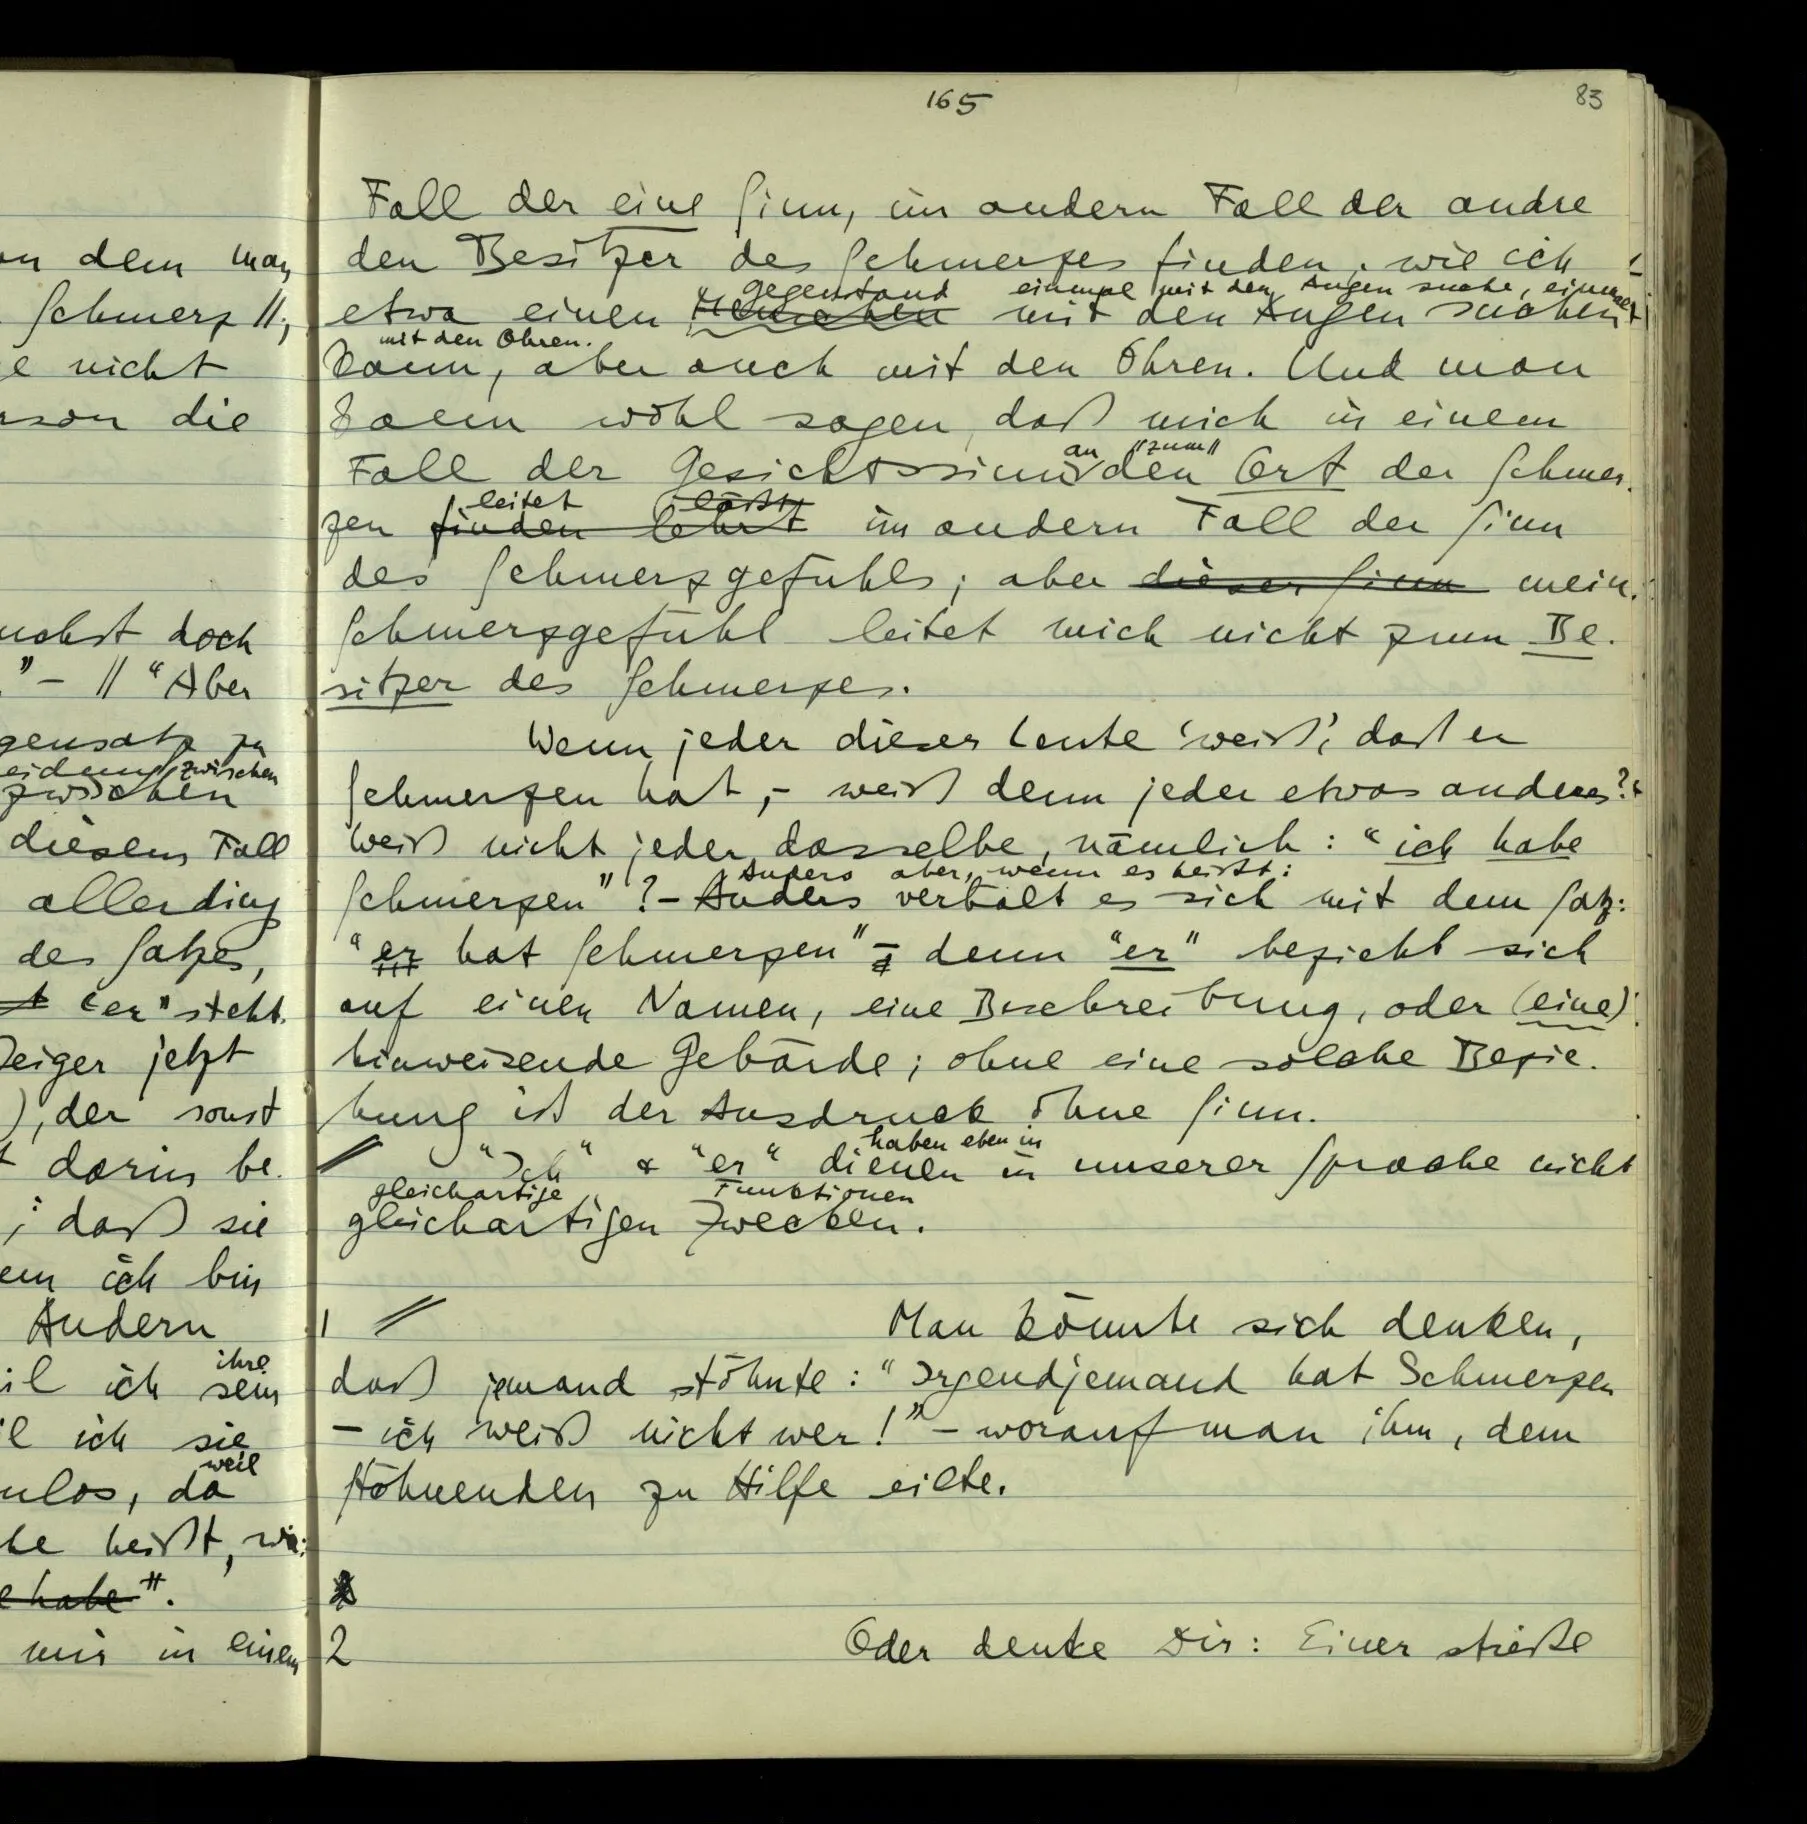 165
83
Fall der eine Sinn, im andern Fall der andre
den Besitzer des Schmerzes finden, wie ich
Gegenstand einmal mit den Augen suche, einmal
etwa einen Menschen mit den Augen suchen
mit den Ohren.
kann, aber auch mit den Ohren. Und man
kann wohl sagen, daß mich in einem
an "zum"
Fall der Gesichtssinn den Ort der Schmer-
leitet läßt
zen finden lehrt im andern Fall der Sinn
des Schmerzgefühls; aber dieser Sinn mein
Schmerzgefühl leitet mich nicht zum Be-
sitzer des Schmerzes.
Wenn jeder dieser Leute 'weiß', daß er
Schmerzen hat, – weiß denn jeder etwas anderes?
Weiß nicht jeder dasselbe, nämlich: "ich habe
Anders aber, wenn es heißt:
Schmerzen"? – Anders verhält es sich mit dem Satz:
"er hat Schmerzen" – denn "er" bezieht sich
auf einen Namen, eine Beschreibung, oder (eine)
hinweisende Gebärde; ohne eine solche Bezie-
hung ist der Ausdruck ohne Sinn.
haben eben in
// "Ich" & "er" dienen in unserer Sprache nicht
gleichartige Funktionen
gleichartigen Zwecken.
1 // Man könnte sich denken,
daß jemand stöhnte: "Irgendjemand hat Schmerzen
– ich weiß nicht wer!" – worauf man ihm, dem
Stöhnenden zu Hilfe eilte.
2 Oder denke Dir: Einer stieße
on dem man
Schmerz //;
e nicht
rson die
nchst doch
" – // "Aber
gensatz zu
eidung zwischen
zwischen
diesem Fall
allerding
des Satzes,
"er" steht.
Zeiger jetzt
), der sonst
t darin be-
; daß sie
em ich bin
Andern
ihre
il ich sein
il ich sie
weil
nlos, da
he heißt, wie:
e habe".
mir in einem